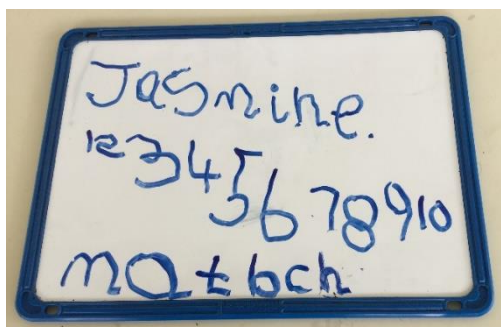 Jasmine.
12345678910
matbch